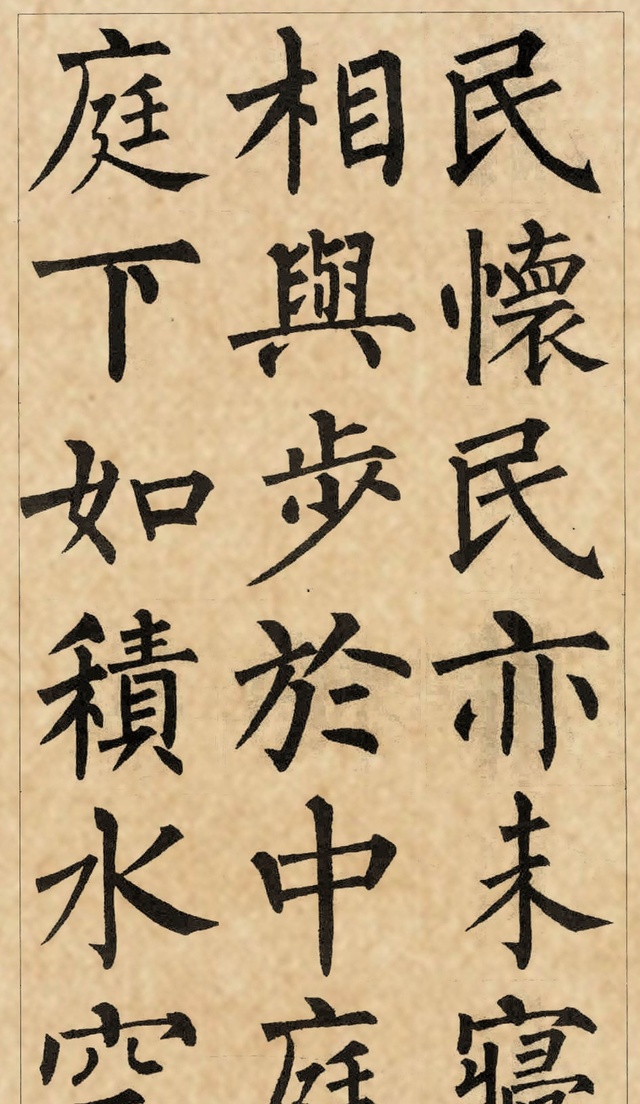 民懷民亦未寢
相與步於中庭
庭下如積水空